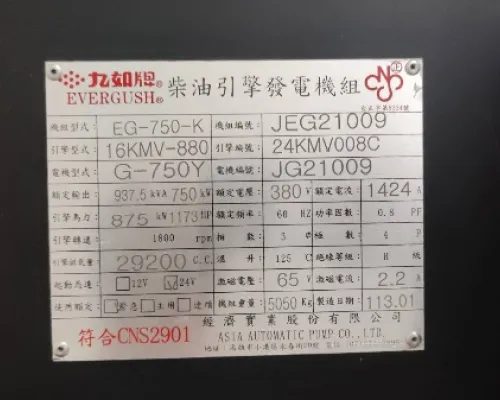 九如牌
EVERGUSH®
柴油引擎發電機組
機組型式: EG-750-K 機組編號: JEG21009
引擎型式: 16KMV-880 引擎編號: 24KMV008C
電機型式: G-750Y 電機編號: JG21009
額定輸出: 937.5 kVA 750 kW 額定電壓: 380 V 額定電流: 1424 A
引擎馬力: 875 kW 1173 HP 額定頻率: 60 HZ 功率因數: 0.8 PF
引擎轉速: 1800 rpm 相數: 3 極數: 4 P
29200 C.C. 溫升: 125 C 絕緣等級: H 級
起動馬達: 12V 24V 激磁電壓: 65 V 激磁電流: 2.2 A
使用額定: 緊急 常用 連續 機組重量: 5050 Kg 製造日期: 113.01
符合CNS2901
經濟實業股份有限公司
ASIA AUTOMATIC PUMP CO., LTD.